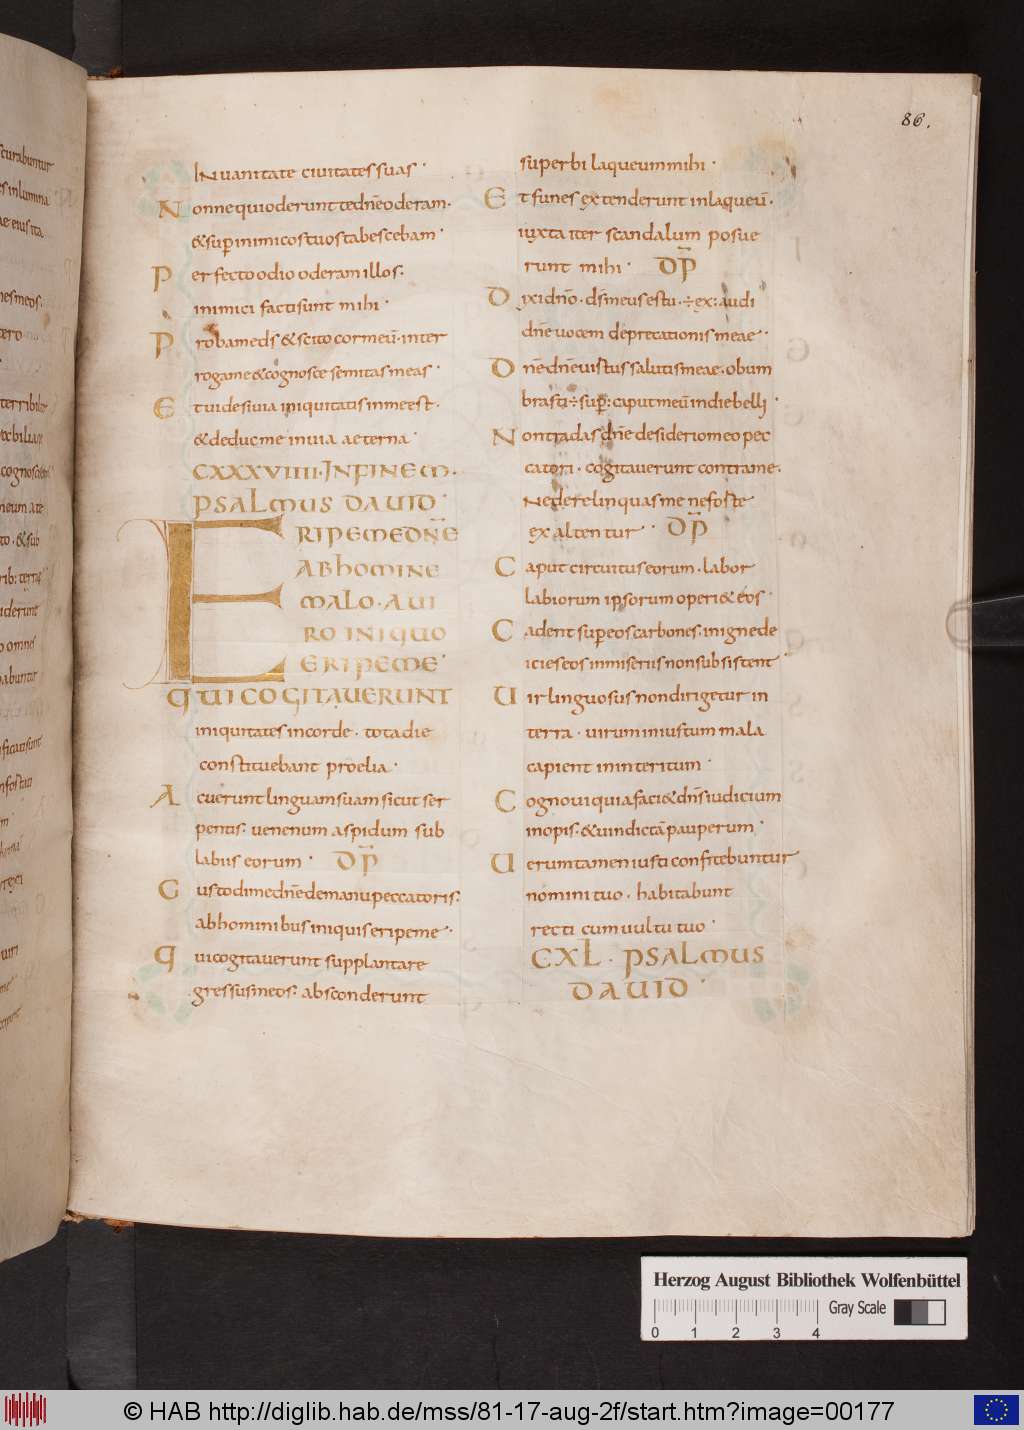 86.
In uanitate ciuitates suas·
Nonne qui oderunt te dnē oderam·
& sup inimicos tuos tabescebam·
Perfecto odio oderam illos:
inimici facti sunt mihi·
Proba me ds̄ & scito cor meū· inter
roga me & cognosce semitas meas·
Et uide si uia iniquitatis in me est·
& deduc me in uia aeterna·
CXXXVIIII· IN FINEM·
PSALMUS DAVID·
ERIPE ME DN̄E
AB HOMINE
MALO· A UI
RO INIQUO
ERIPE ME·
QUI COGITAUERUNT
iniquitates in corde· tota die
constituebant proelia·
Acuerunt linguam suam sicut ser
pentis: uenenum aspidum sub
labiis eorum· DP̄
Custodi me dnē de manu peccatoris:
ab hominibus iniquis eripe me·
Qui cogitauerunt supplantare
gressus meos: absconderunt
superbi laqueum mihi·
Et funes extenderunt in laqueū·
iuxta iter scandalum posue
runt mihi· DP̄
Dixi dnō· ds̄ meus es tu· ÷ ex: audi
dnē uocem deprecationis meae·
Dnē dnē uirtus salutis meae· obum
brasti ÷ sup̄: caput meū in die belli·
Non tradas dnē desiderio meo pec
catori· cogitauerunt contra me·
Ne derelinquas me ne forte
exaltentur· DP̄
Caput circuitus eorum· labor
labiorum ipsorum operi& eos·
Cadent super eos carbones· in igne de
icies eos in miseriis non subsistent·
Uir linguosus non dirigetur in
terra· uirum iniustum mala
capient in interitum·
Cognoui quia faci& dn̄s iudicium
inopis· & uindictā pauperum·
Uerumtamen iusti confitebuntur
nomini tuo· habitabunt
recti cum uultu tuo·
CXL· PSALMUS
DAUID·
Herzog August Bibliothek Wolfenbüttel
0 1 2 3 4 Gray Scale
© HAB http://diglib.hab.de/mss/81-17-aug-2f/start.htm?image=00177